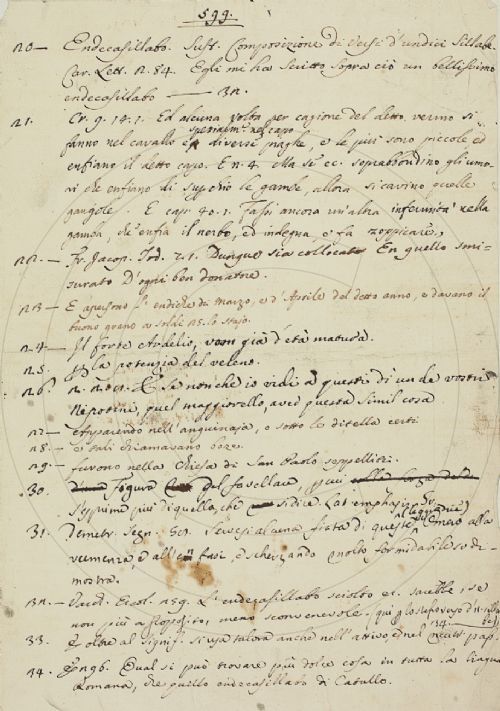 599.
20 — Endecasillabo. Sust. Composizione di Versi d'undici sillabe.
Car. Lett. 2. 54. Egli mi ha scritto sopra ciò un bellissimo
endecasillabo — 32.
21. Cr. 9. 14. 1. Ed alcuna volta per cagione del detto vermo si
fanno nel cavallo spezialm.e nel capo diverse piaghe, e le più sono piccole ed
enfiano il detto capo. E n. 4. Ma se ec. soprabbondino gli umo-
ri che enfiano di soperchio le gambe, allora si cavino quelle
gangole. E cap. 40. 1. Fassi ancora un'altra infermità nella
gamba, che enfia il nerbo, ed indegna, e fa zoppicare,
22. — Fr. Jacop. Tod. 21. Dunque sia collocato En quello smi-
surato D'ogni ben donatore.
23 — E apersono l'endiche da Marzo, e d'Aprile del detto anno, e davano il
buono grano a soldi 25. lo stajo.
24 — Il forte Ardelio, uom già d'età matura.
25. la potenzia del veleno.
26. E se non che io vidi a questi dì un de' vostri
Nepotini, quel maggiorello, aver questa simil cosa
27 — Apparendo nell'anguinaja, o sotto le ditella certi
28. — e tali chiamavano boze.
29 — furono nella Chiesa di San Paolo seppelliti.
30. figura del favellare, per cui
si dice. Lat. emphasis. Gr.
31. Demetr. Segn. 501. Servesi alcuna fiata di queste (allegorie) Omero alla
veemenza, e all'enfasi, e scherzando molto formidabile si di-
mostra.
32. — Uden. Nisiel. 259. L'endecasillabo sciolto ec. sarebbe, se
non più a proposito, meno sconvenevole.
33. E oltre al signif. si usa talora anche nell'attivo, e nel neutr. pass.
34. E 96. Qual si può trovare più dolce cosa in tutta la lingua
Romana, che quello endecasillabo di Catullo.